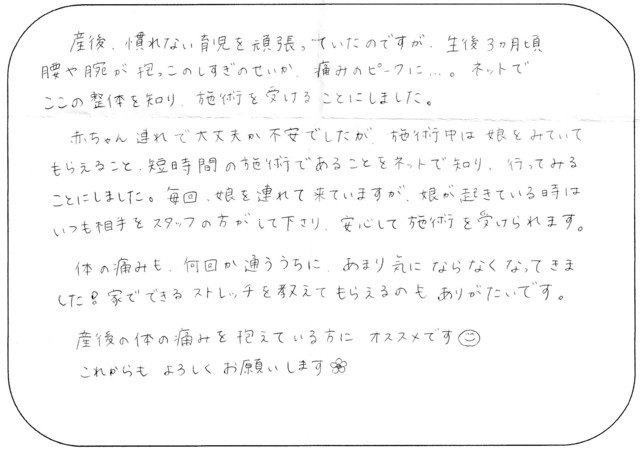 産後、慣れない育児を頑張っていたのですが、生後3ヵ月頃
腰や腕が抱っこのしすぎのせいか、痛みのピークに…。ネットで
ここの整体を知り、施術を受けることにしました。
赤ちゃん連れで大丈夫か不安でしたが、施術中は娘をみていて
もらえること、短時間の施術であることをネットで知り、行ってみる
ことにしました。毎回、娘を連れて来ていますが、娘が起きている時は
いつも相手をスタッフの方がして下さり、安心して施術を受けられます。
体の痛みも、何回か通ううちに、あまり気にならなくなってきま
した!!家でできるストレッチを教えてもらえるのもありがたいです。
産後の体の痛みを抱えている方にオススメです☺
これからもよろしくお願いします❀